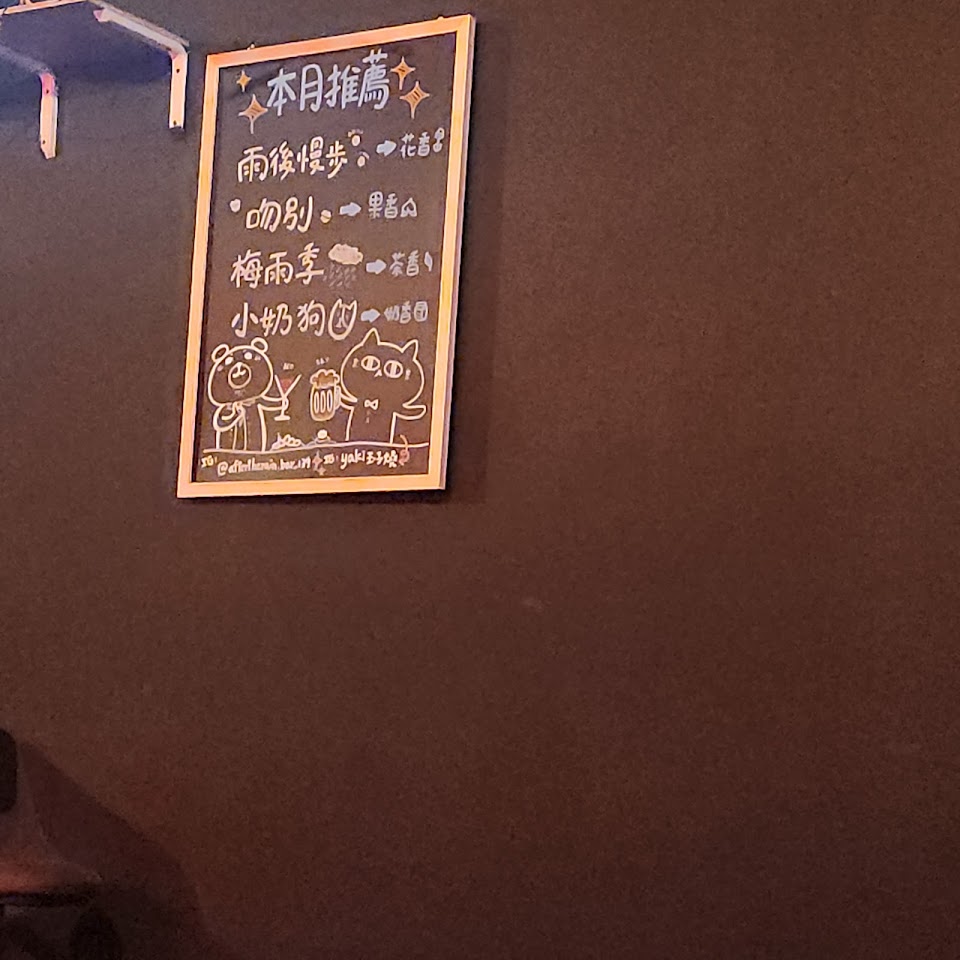 本月推薦
雨後慢步 → 花香
吻別 → 果香
梅雨季 → 茶香
小奶狗 → 奶香
IG: yaki玉子燒